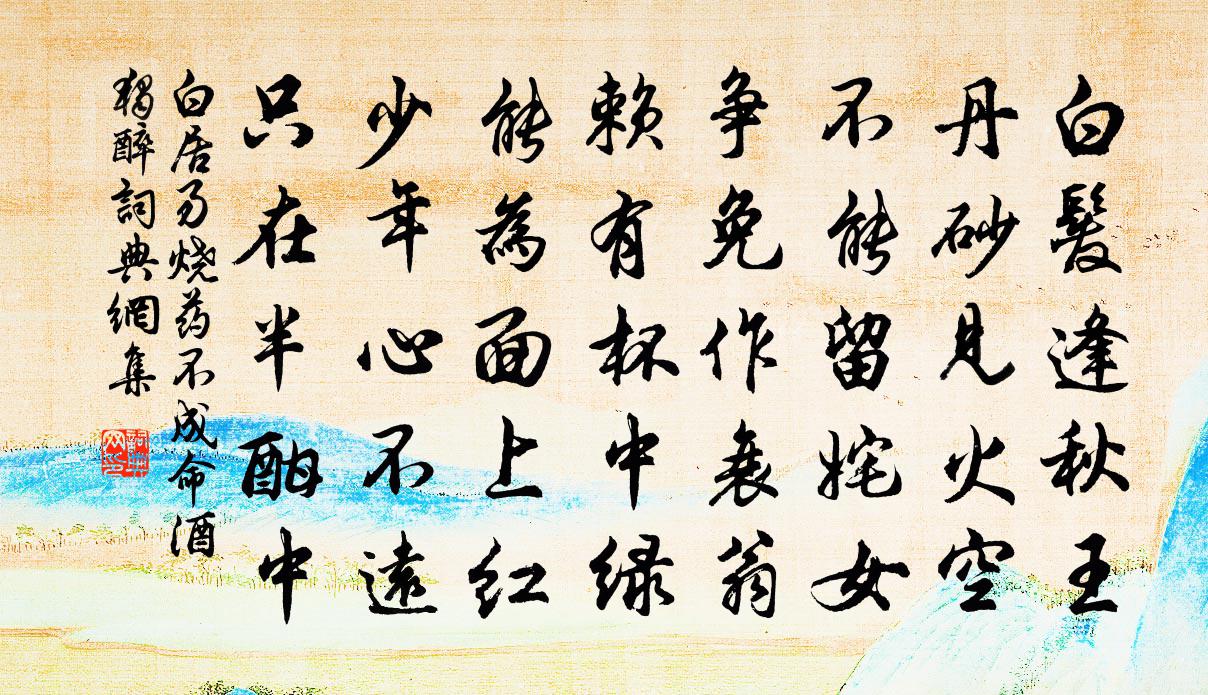 白髮逢秋王
丹砂見火空
不能留姹女
争免作衰翁
赖有杯中绿
能為面上红
少年心不遠
只在半酣中
白居易烧药不成命酒
獨醉詞典網集